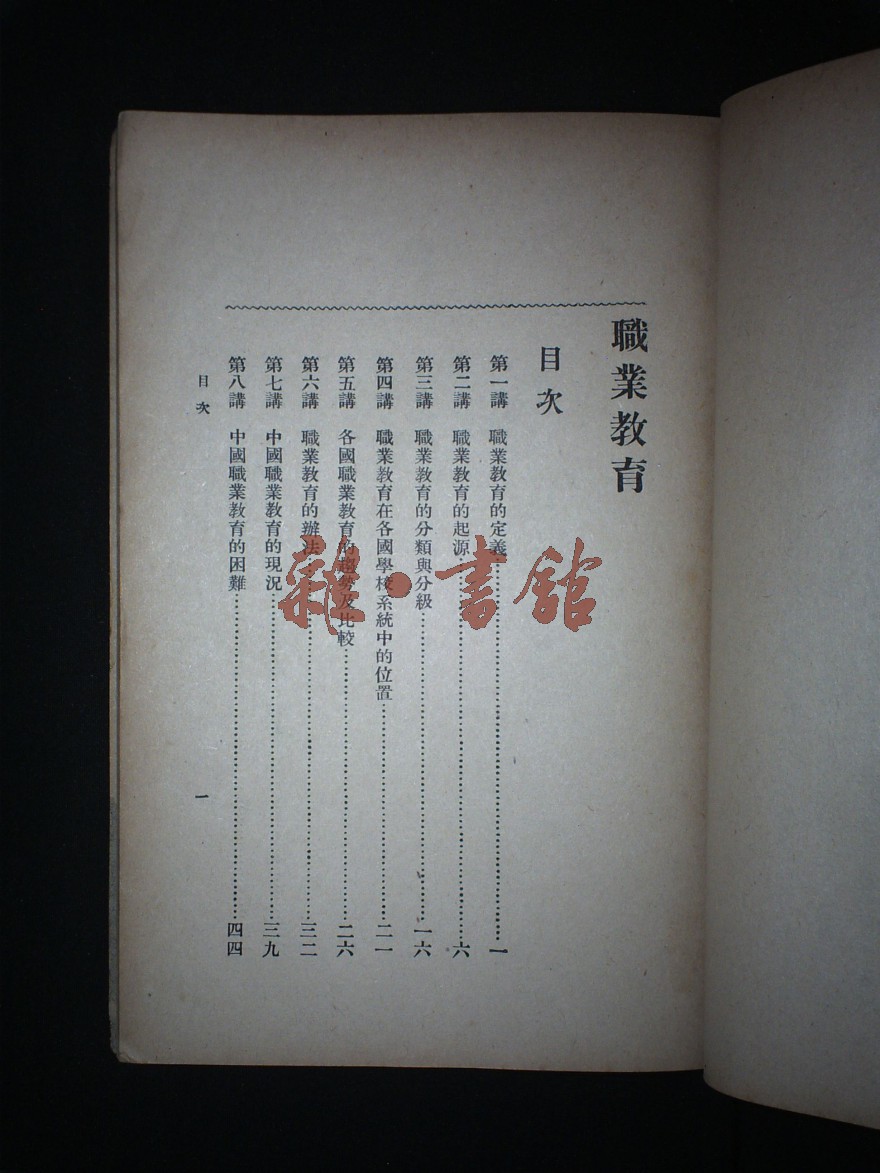 職業教育
目次
第一講　職業教育的定義…………一
第二講　職業教育的起源…………六
第三講　職業教育的分類與分級…………一六
第四講　職業教育在各國學校系統中的位置…………二一
第五講　各國職業教育的趨勢及比較…………二六
第六講　職業教育的辦法…………三二
第七講　中國職業教育的現況…………三九
第八講　中國職業教育的困難…………四四
目次
一
雜·書館